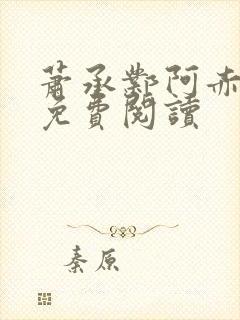 蕭承鄴阿赤
免費閱讀
秦原